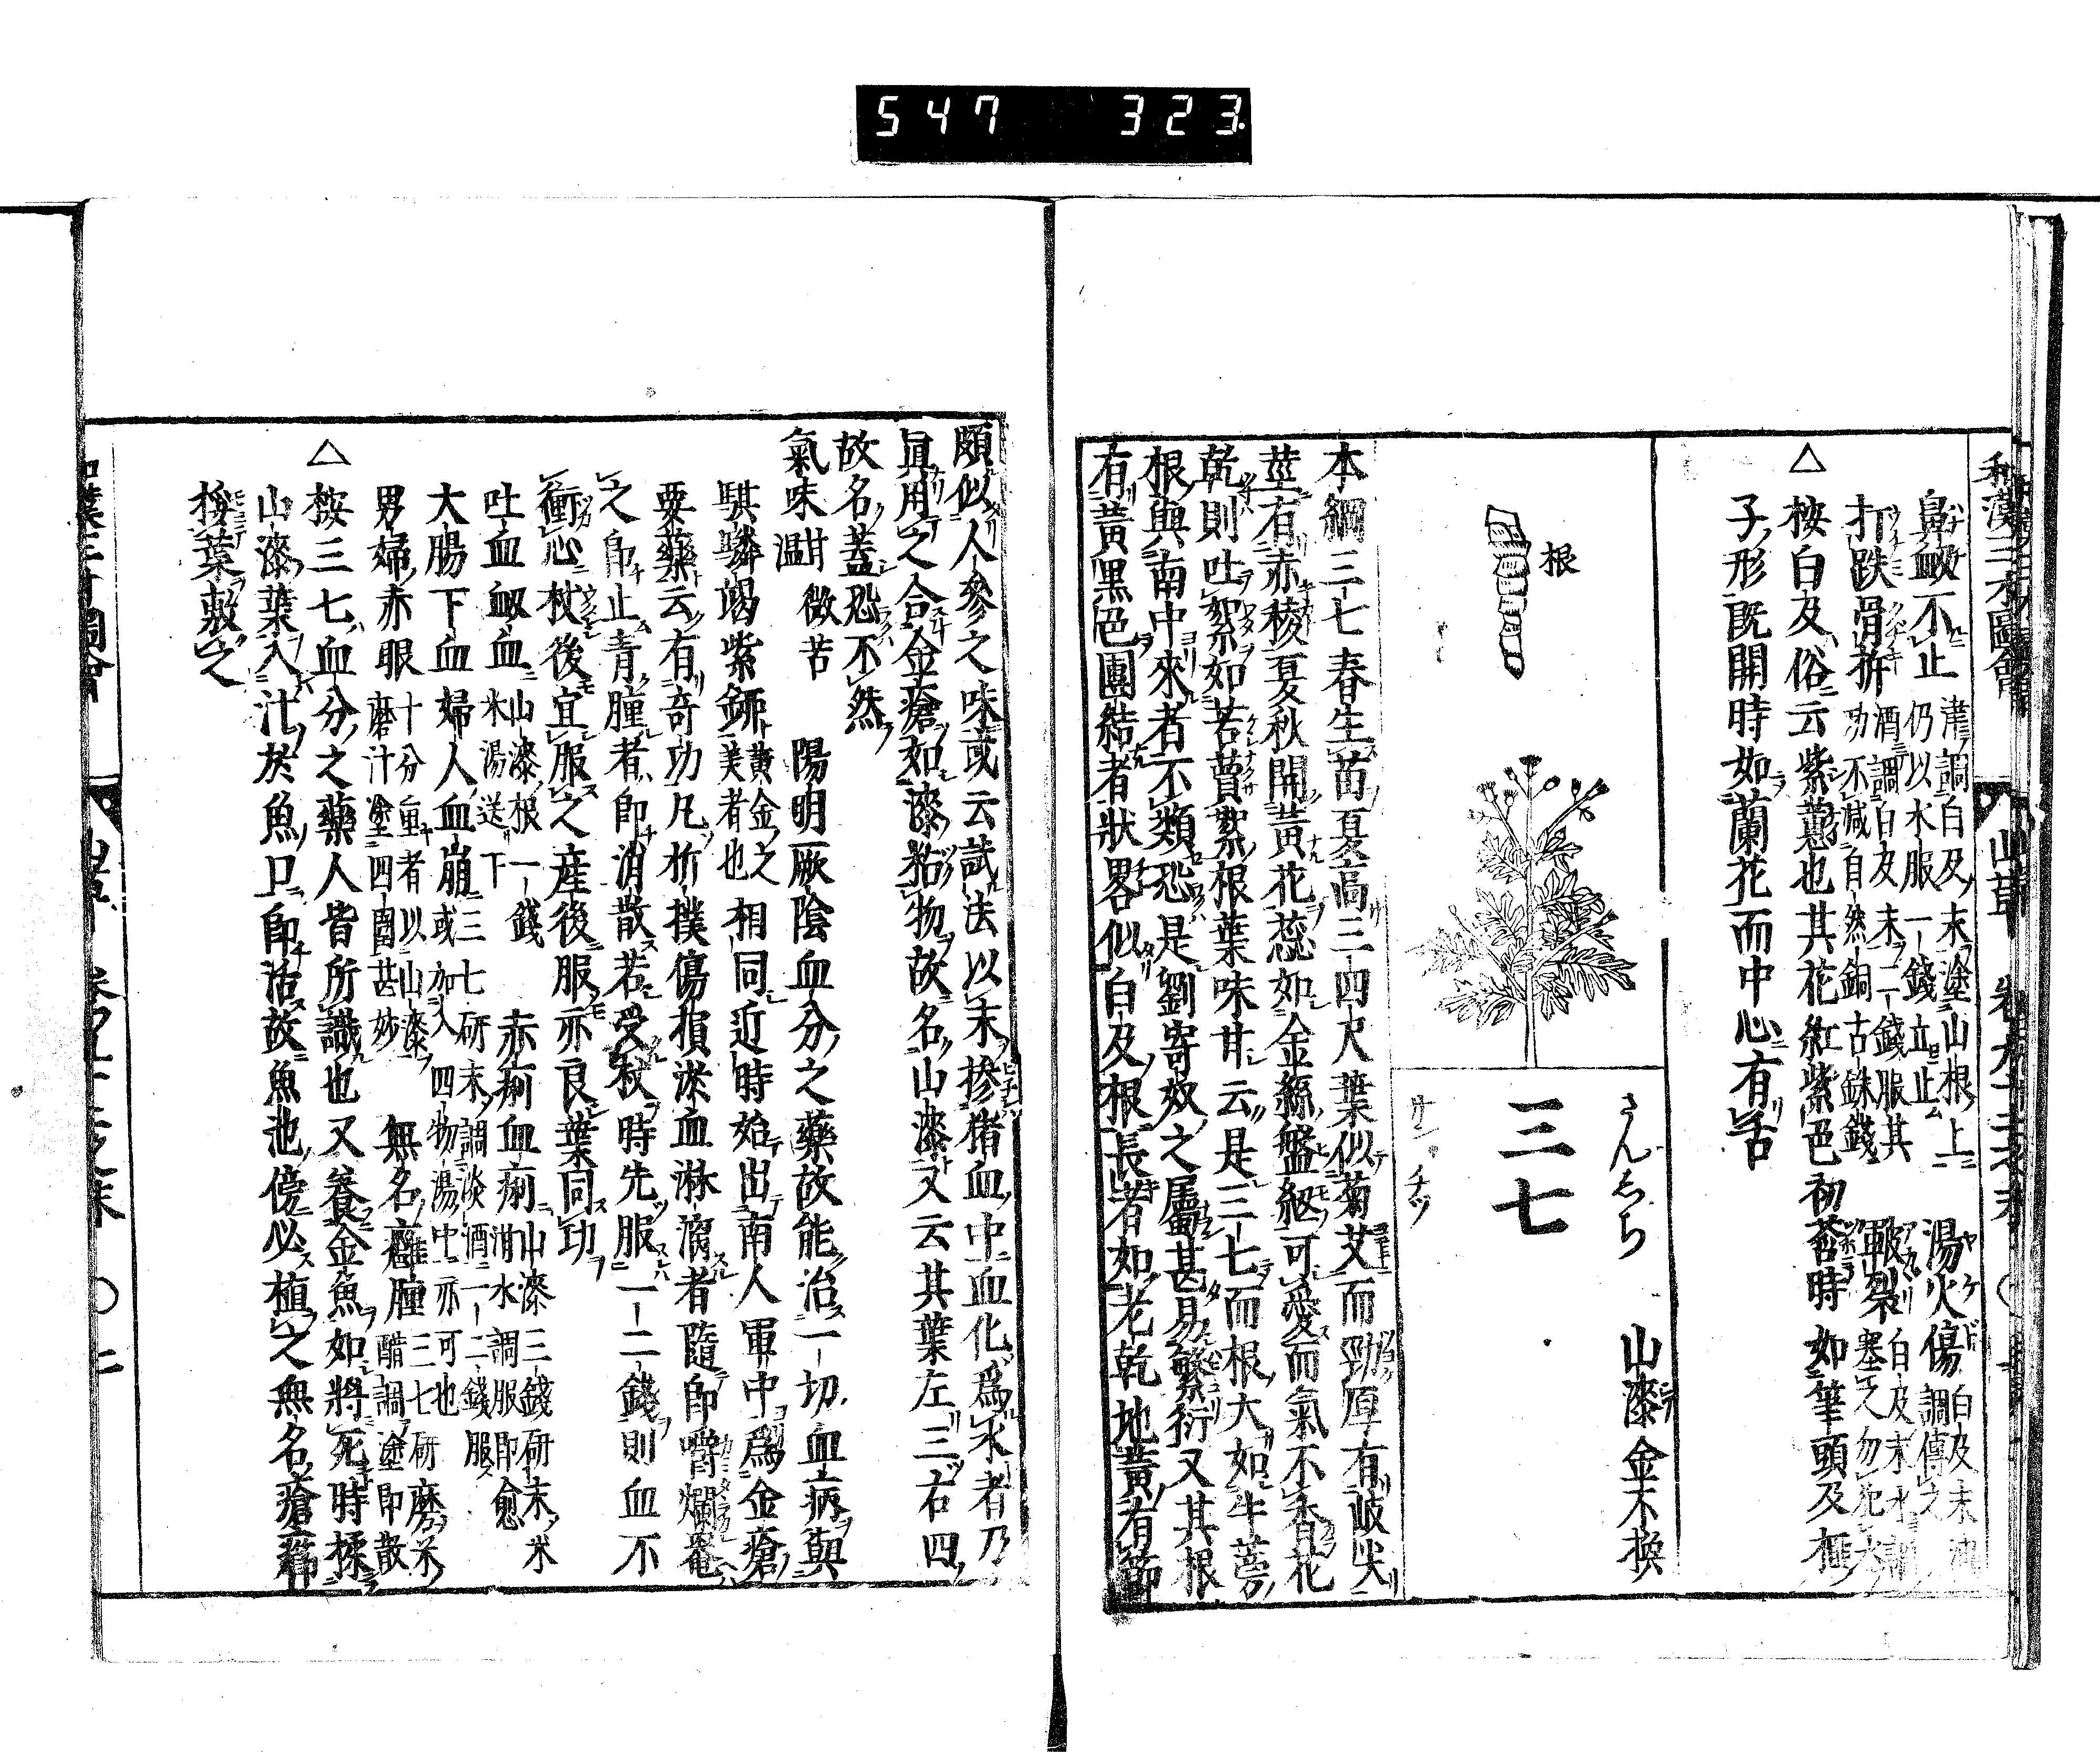 547 323
和漢三才圖會
山草 卷九十二之末
鼻衄不止 津調白及末塗山根上仍以水服一錢立止 湯火傷 白及末油調傅之
打跌骨折 酒調白及末二錢服其功不減自然銅古銖錢 皸裂 白及末水調塞之勿犯水
△桉白及俗云紫蕙也其花紅紫色初苔時如筆頭及椏
子形既開時如蘭花而中心有舌
根
さんしち
三七
サン チツ
山漆 金不換
本綱三七春生苗夏高三四尺葉似菊艾而勁厚有岐尖
莖有赤稜夏秋開黃花蕊如金絲盤紐可愛而氣不香花
乾則吐絮如苦蕒絮根葉味甘云是三七而根大如牛蒡
根與南中來者不類恐是劉寄奴之屬甚易繁衍又其根
有黃黑色團結者狀畧似白及根長者如老乾地黃有節
頗似人參之味或云試法以末摻猪血中血化爲水者乃
眞用之合金瘡如漆粘物故名山漆又云其葉左三右四
故名蓋恐不然
氣味 甘微苦温 陽明厥陰血分之藥故能治一切血病與
騏驎竭紫鉚 黃金之美者也 相同近時始出南人軍中爲金瘡
要藥云有奇功凡折撲傷損淤血淋漓者隨即嚼爛罨
之即止青腫者即消散若受杖時先服一二錢則血不
衝心杖後宜服之產後服亦良葉同功
吐血衂血 山漆根一錢米湯送下 赤痢血痢 山漆三錢研末米泔水調服即愈
大腸下血 三七研末調淡酒一二錢服 婦人血崩 或加入四物湯中亦可也
男婦赤眼 十分重者以山漆磨汁塗四圍甚妙 無名癰腫 三七研磨米醋調塗即散
△桉三七血分之藥人皆所識也又養金魚如將死時揉
山漆葉入汁於魚口即活故魚池傍必植之無名瘡癤
揉葉敷之